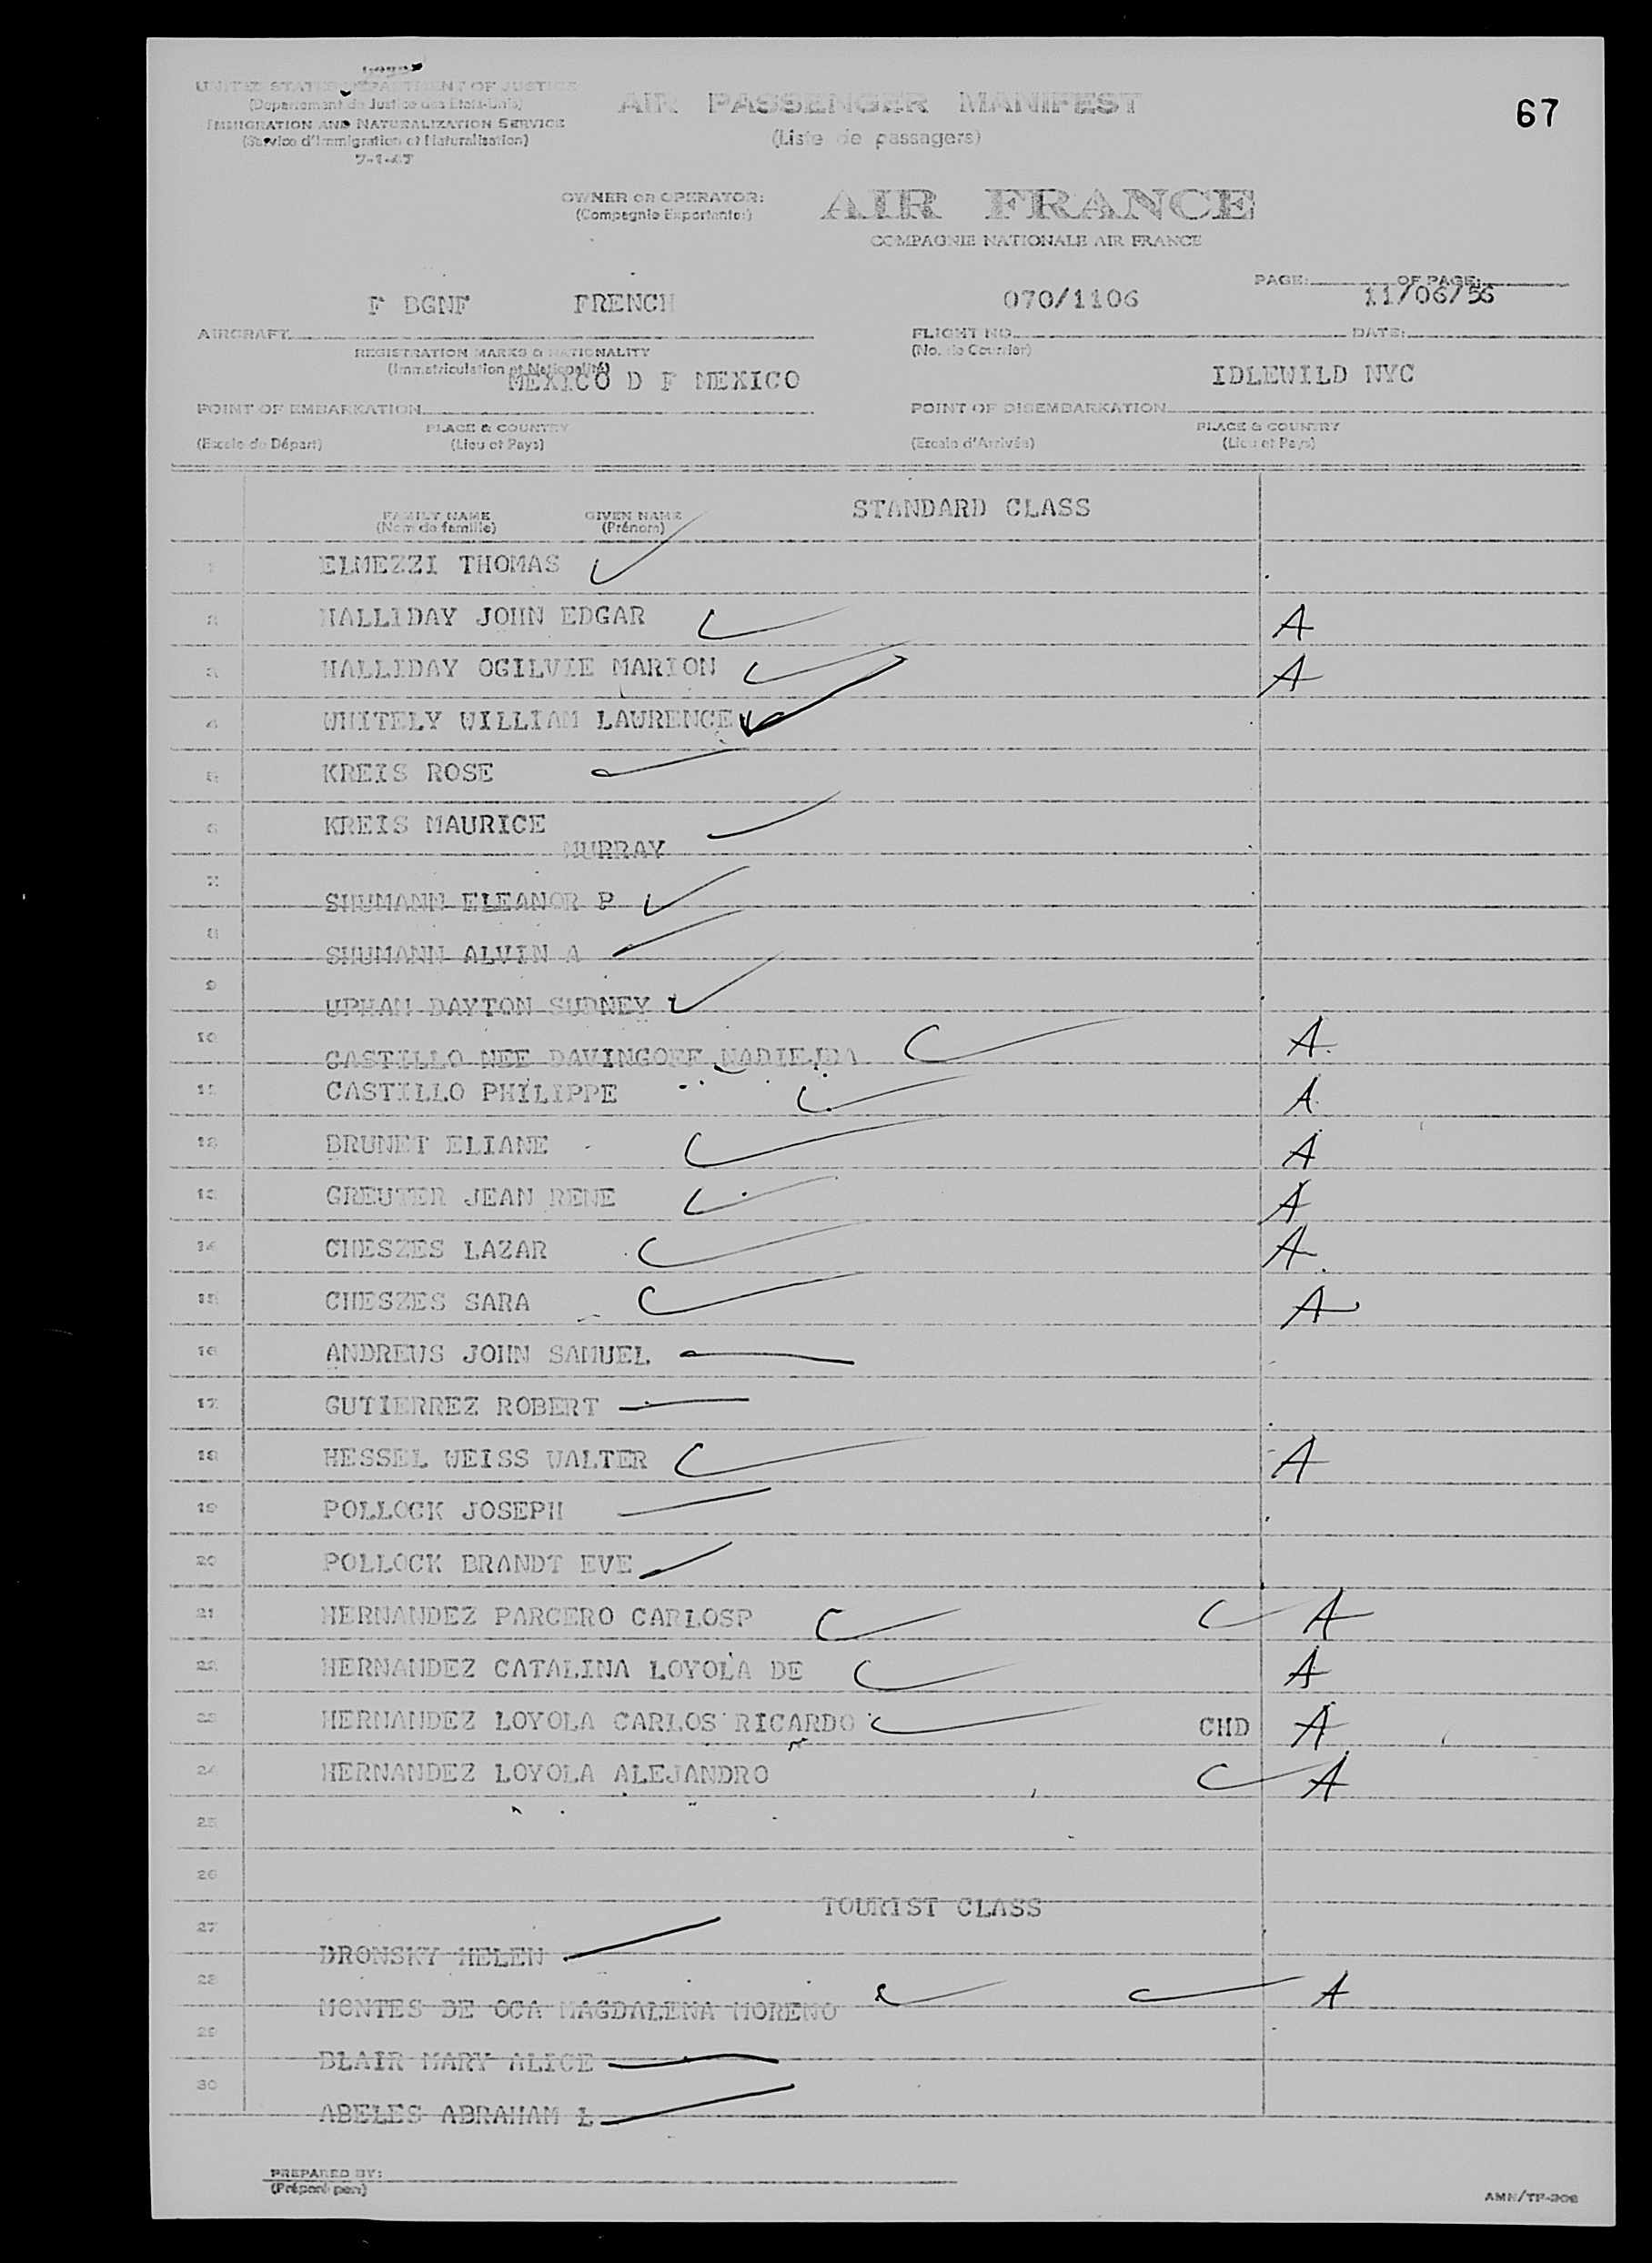 67
UNITED STATES DEPARTMENT OF JUSTICE
(Departement de Justice des Etats-Unis)
IMMIGRATION AND NATURALIZATION SERVICE
(Service d'Immigration et Naturalisation)
7-1-47
AIR PASSENGER MANIFEST
(Liste de passagers)
OWNER OR OPERATOR:
(Compagnie Exportante:)
AIR FRANCE
COMPAGNIE NATIONALE AIR FRANCE
PAGE: OF PAGE:
F BGNF FRENCH 070/1106 11/06/56
AIRCRAFT FLIGHT NO. DATE:
REGISTRATION MARKS & NATIONALITY (No. de Courrier)
(Immatriculation et Nationalité)
MEXICO D F MEXICO IDLEWILD NYC
POINT OF EMBARKATION POINT OF DISEMBARKATION
PLACE & COUNTRY PLACE & COUNTRY
(Escale de Départ) (Lieu et Pays) (Escale d'Arrivée) (Lieu et Pays)
STANDARD CLASS
FAMILY NAME GIVEN NAME
(Nom de famille) (Prénom)
1 ELMEZZI THOMAS
2 HALLIDAY JOHN EDGAR A
3 HALLIDAY OGILVIE MARION A
4 WHITELY WILLIAM LAWRENCE
5 KREIS ROSE
6 KREIS MAURICE
MURRAY
7 SHUMANN ELEANOR P
8 SHUMANN ALVIN A
9 UPHAM DAYTON SUDNEY
10 CASTILLO NEE DAVINGOFF NADIEJDA A
11 CASTILLO PHILIPPE A
12 BRUNET ELIANE A
13 GREUTER JEAN RENE A
14 CHESZES LAZAR A
15 CHESZES SARA A
16 ANDREWS JOHN SAMUEL
17 GUTIERREZ ROBERT
18 HESSEL WEISS WALTER A
19 POLLOCK JOSEPH
20 POLLOCK BRANDT EVE
21 HERNANDEZ PARCERO CARLOSP A
22 HERNANDEZ CATALINA LOYOLA DE A
23 HERNANDEZ LOYOLA CARLOS RICARDO CHD A
24 HERNANDEZ LOYOLA ALEJANDRO A
25
26
TOURIST CLASS
27 DRONSKY HELEN
28 MONTES DE OCA MAGDALENA MORENO A
29 BLAIR MARY ALICE
30 ABELES ABRAHAM L
PREPARED BY:
(Préparé par)
AMN/TP-306